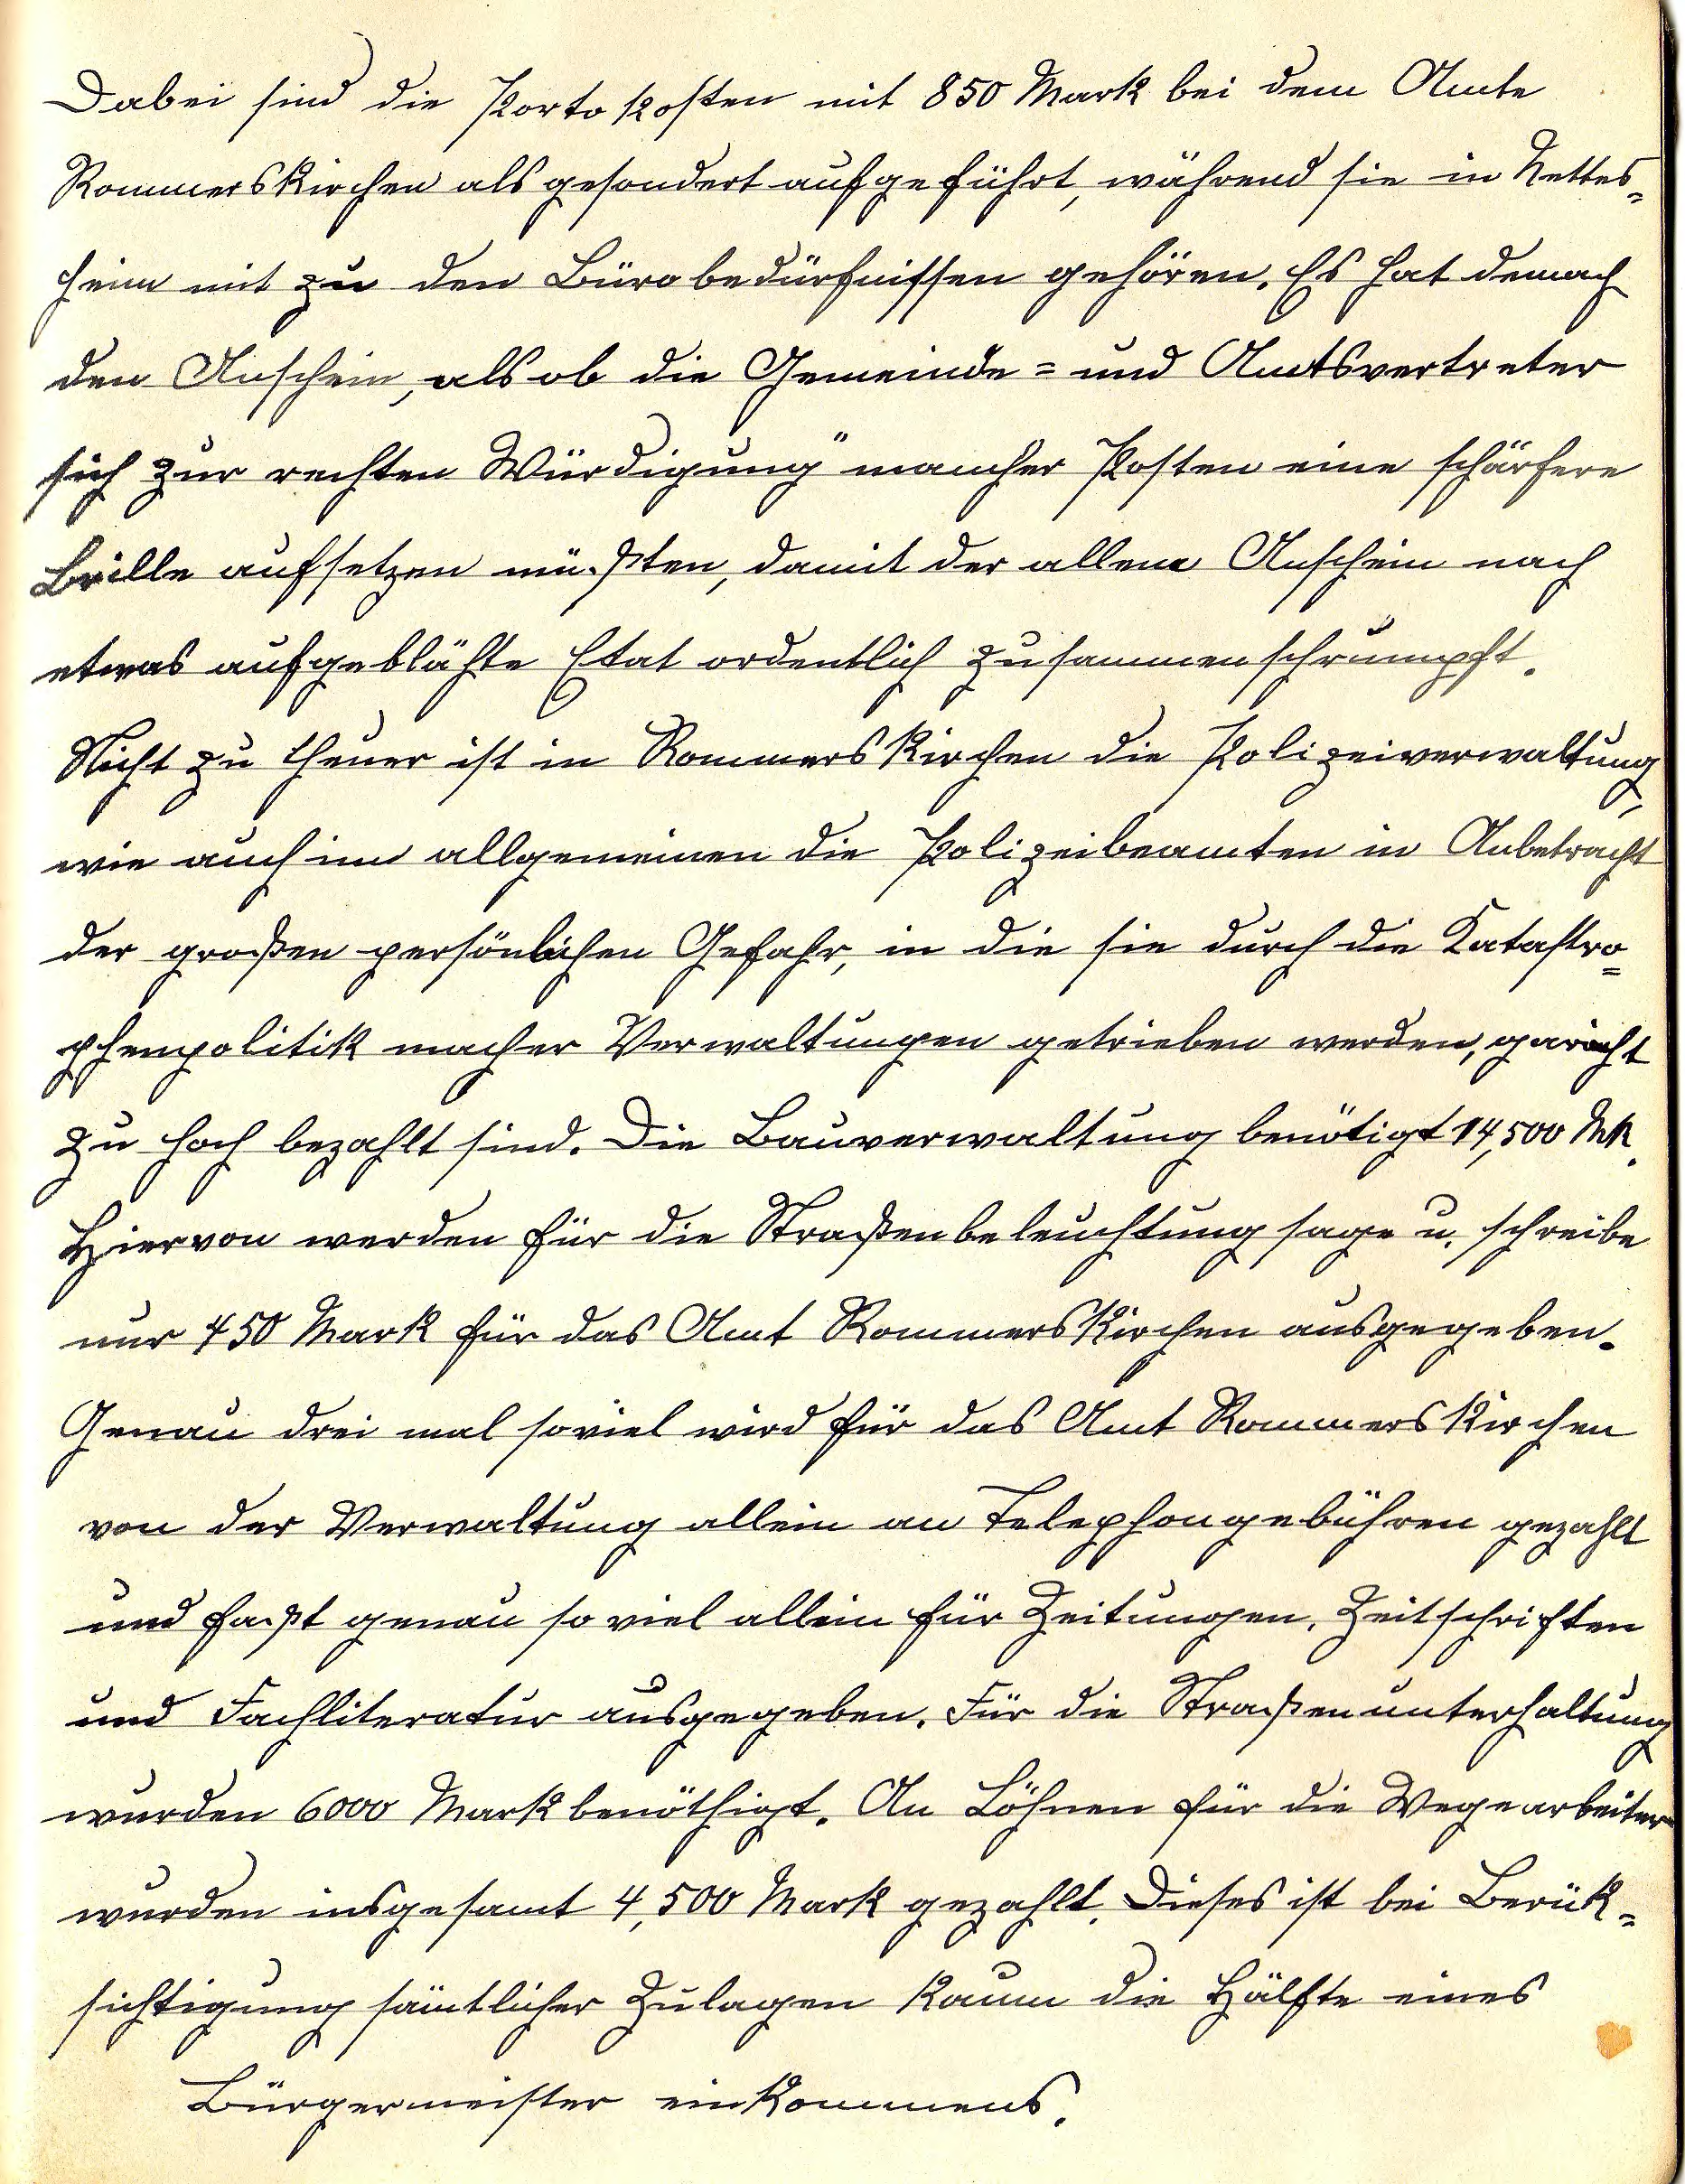 Dabei sind die Porto kosten mit 850 Mark bei dem Amte
Rommerskirchen als gesondert aufgeführt, während sie in Nettes=
heim mit zu den Büro bedürfnissen gehören. Es hat demach
den Anschein, als ob die Gemeinde= und Amtsvertreter
sich zur rechten Würdigung" mancher Posten eine schärfere
Brille aufsetzen müßten, damit der allem Anschein nach
etwas aufgeblähte Etat ordentlich zusammenschrumpft.
Nicht zu theuer ist in Rommerskirchen die Polizeiverwaltung,
wie auch im allgemeinen die Polizeibeamten in Anbetracht
der großen persönlichen Gefahr, in die sie durch die Katastro=
phenpolitik macher Verwaltungen getrieben werden, garnicht
zu hoch bezahlt sind. Die Bauverwaltung benötigt 14,500 Mk.
Hiervon werden für die Straßenbeleuchtung sage u. schreibe
nur 450 Mark für das Amt Rommerskirchen ausgegeben.
Genau drei mal soviel wird für das Amt Rommerskirchen
von der Verwaltung allein an Telephongebühren gezahlt
und faßt genau so viel allein für Zeitungen, Zeitschriften
und Fachliteratur ausgegeben. Für die Straßenunterhaltung
wurden 6000 Mark benöthigt. An Löhnen für die Wegearbeiter
wurden insgesamt 4,500 Mark gezahlt. Dieses ist bei Berük=
sichtigung sämtlicher Zulagen kaum die Hälfte eines
Bürgermeister einkommens.